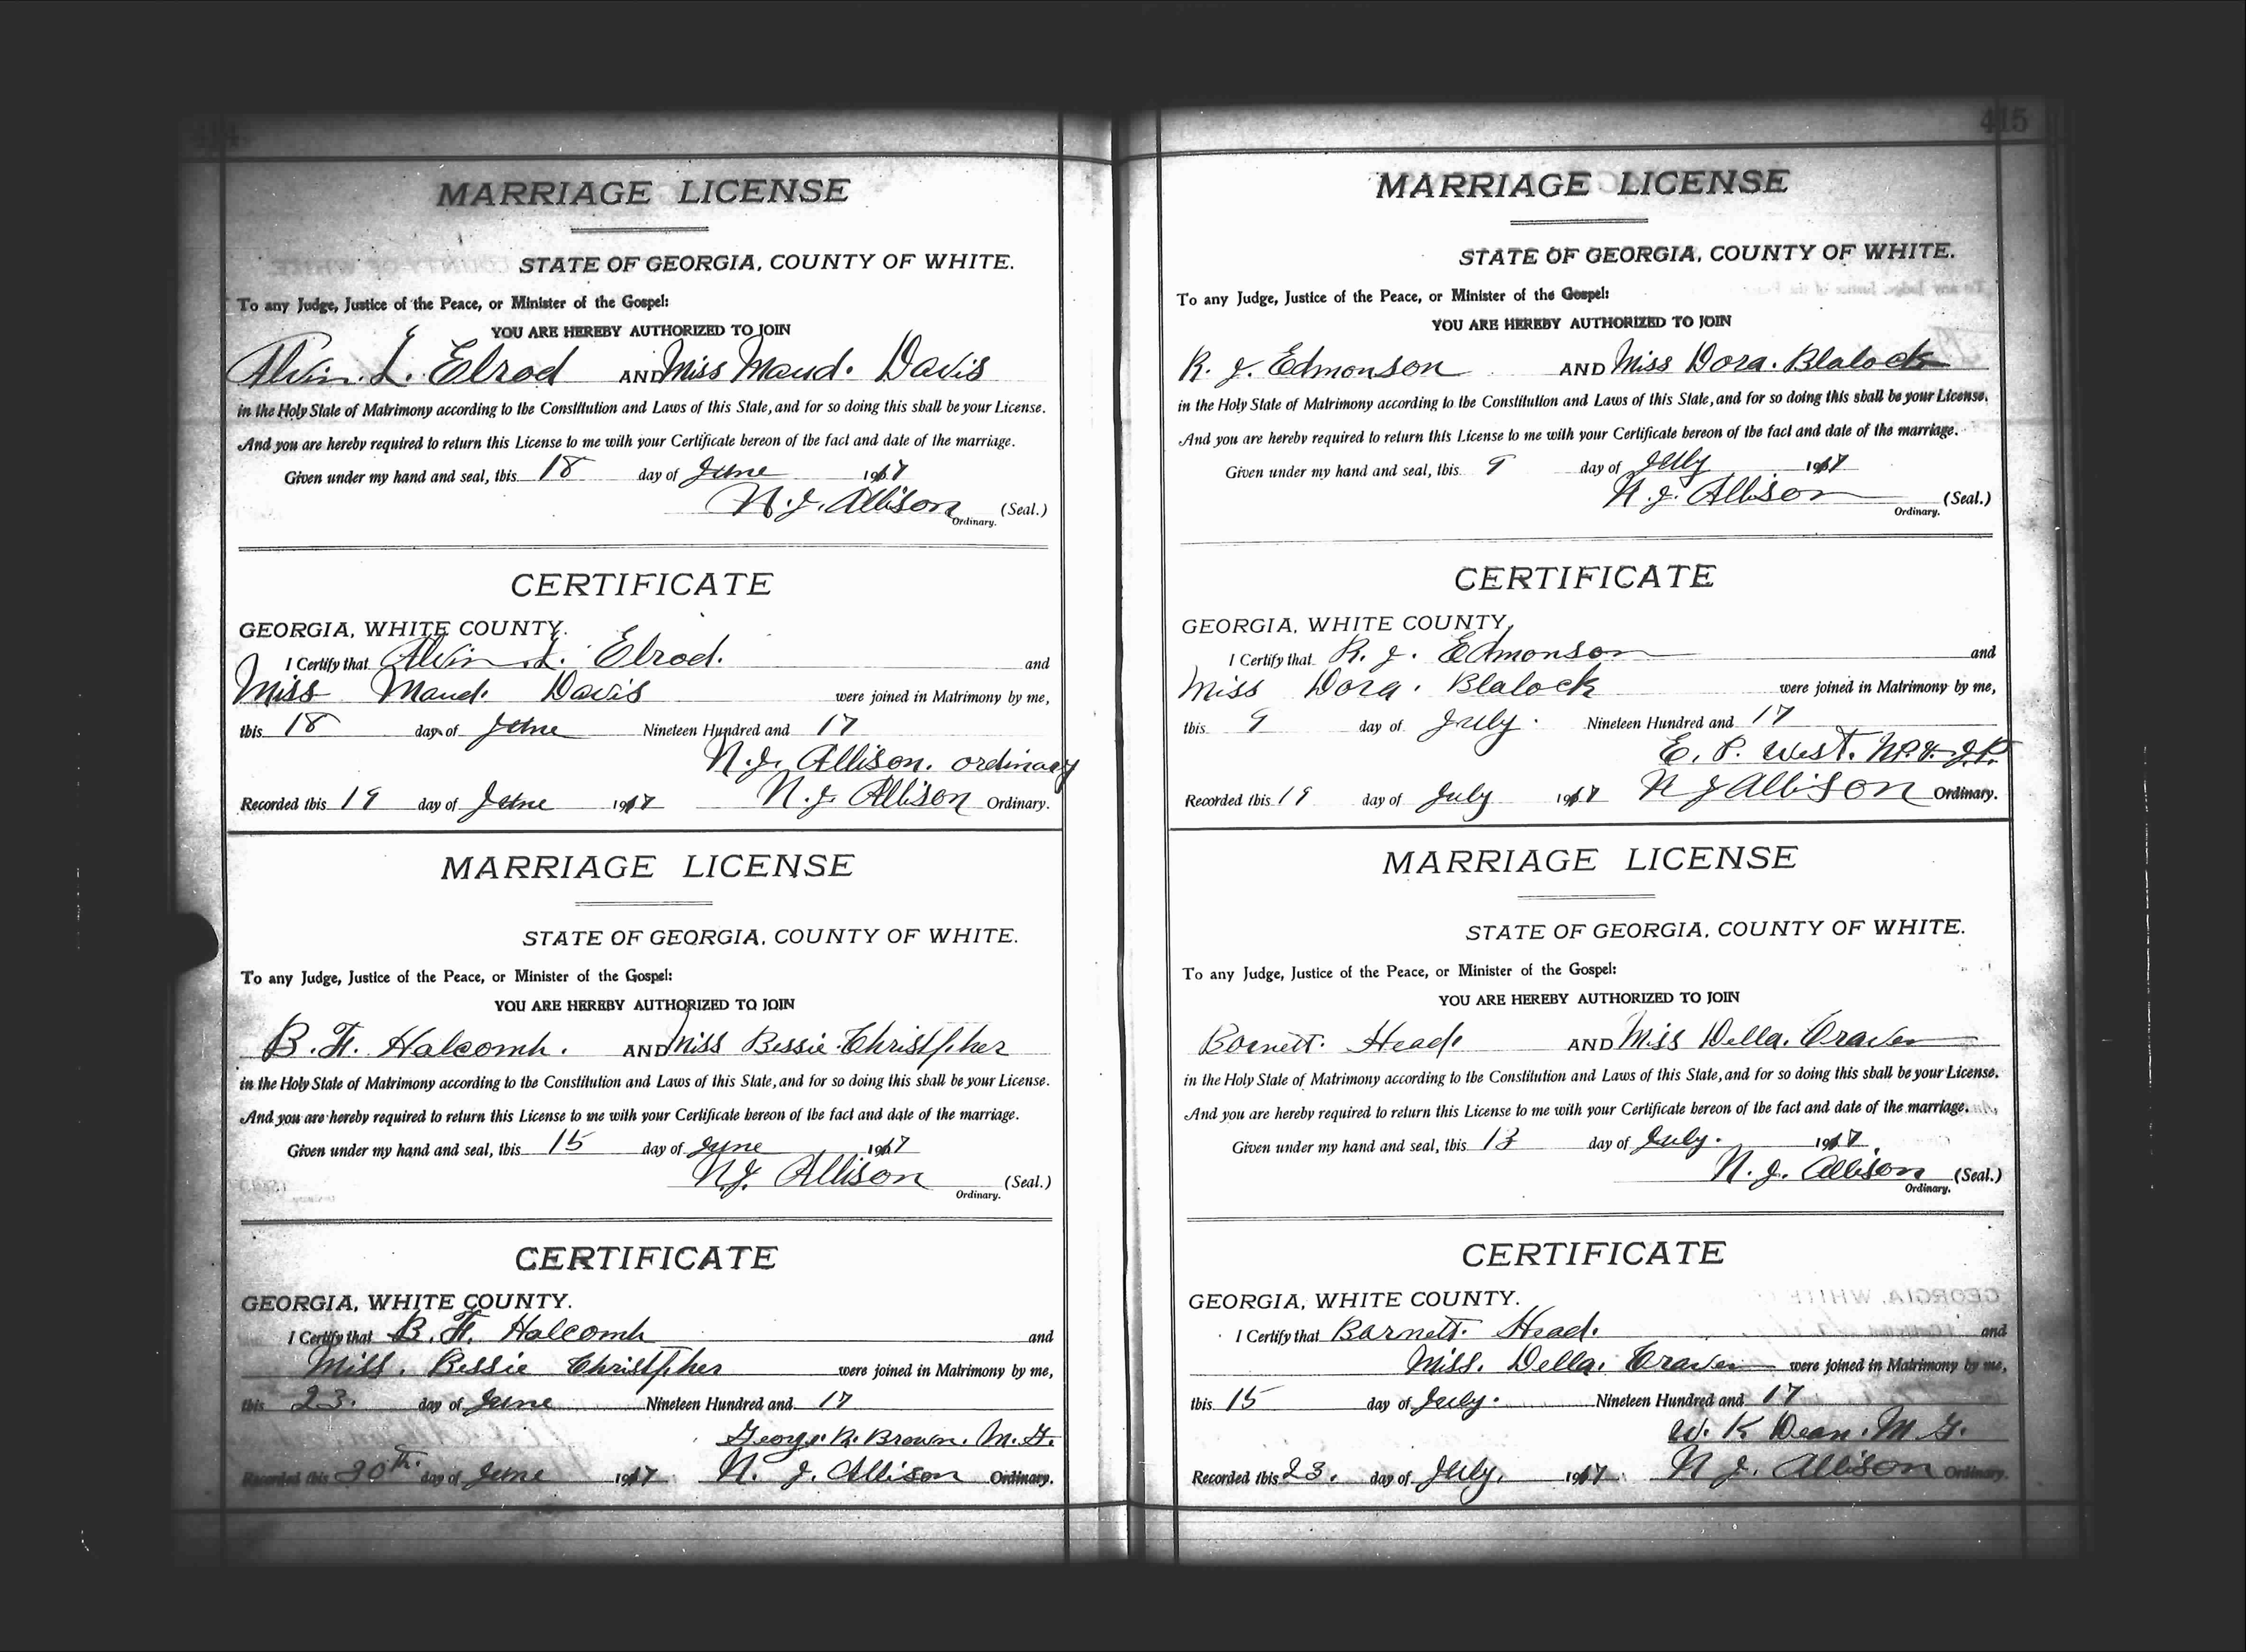 414
MARRIAGE LICENSE
STATE OF GEORGIA, COUNTY OF WHITE.
To any Judge, Justice of the Peace, or Minister of the Gospel:
YOU ARE HEREBY AUTHORIZED TO JOIN
Alvin. L. Elrod AND Miss Maud. Davis
in the Holy State of Matrimony according to the Constitution and Laws of this State, and for so doing this shall be your License.
And you are hereby required to return this License to me with your Certificate hereon of the fact and date of the marriage.
Given under my hand and seal, this 18 day of June 1917
N. J. Allison (Seal.)
Ordinary.
CERTIFICATE
GEORGIA, WHITE COUNTY.
I Certify that Alvin. L. Elrod. and
Miss Maud. Davis were joined in Matrimony by me,
this 18 day of June Nineteen Hundred and 17
N. J. Allison. ordinary
Recorded this 19 day of June 1917 N. J. Allison Ordinary.
MARRIAGE LICENSE
STATE OF GEORGIA, COUNTY OF WHITE.
To any Judge, Justice of the Peace, or Minister of the Gospel:
YOU ARE HEREBY AUTHORIZED TO JOIN
B. F. Halcomb. AND Miss Bessie Christpher
in the Holy State of Matrimony according to the Constitution and Laws of this State, and for so doing this shall be your License.
And you are hereby required to return this License to me with your Certificate hereon of the fact and date of the marriage.
Given under my hand and seal, this 15 day of June 1917
N. J. Allison (Seal.)
Ordinary.
CERTIFICATE
GEORGIA, WHITE COUNTY.
I Certify that B. F. Halcomb and
Miss. Bessie Christpher were joined in Matrimony by me,
this 23. day of June Nineteen Hundred and 17
George R. Brown. M. G.
Recorded this 30th. day of June 1917 N. J. Allison Ordinary.
415
MARRIAGE LICENSE
STATE OF GEORGIA, COUNTY OF WHITE.
To any Judge, Justice of the Peace, or Minister of the Gospel:
YOU ARE HEREBY AUTHORIZED TO JOIN
R. J. Edmonson AND Miss Dora. Blalock
in the Holy State of Matrimony according to the Constitution and Laws of this State, and for so doing this shall be your License.
And you are hereby required to return this License to me with your Certificate hereon of the fact and date of the marriage.
Given under my hand and seal, this 9 day of July 1917
N. J. Allison (Seal.)
Ordinary.
CERTIFICATE
GEORGIA, WHITE COUNTY,
I Certify that R. J. Edmonson and
Miss Dora. Blalock were joined in Matrimony by me,
this 9 day of July. Nineteen Hundred and 17
E. P. West. N.P. & J.P.
Recorded this 19 day of July 1917 N J Allison Ordinary.
MARRIAGE LICENSE
STATE OF GEORGIA, COUNTY OF WHITE.
To any Judge, Justice of the Peace, or Minister of the Gospel:
YOU ARE HEREBY AUTHORIZED TO JOIN
Barnett. Head. AND Miss Della. Craven
in the Holy State of Matrimony according to the Constitution and Laws of this State, and for so doing this shall be your License.
And you are hereby required to return this License to me with your Certificate hereon of the fact and date of the marriage.
Given under my hand and seal, this 13 day of July. 1917.
N. J. Allison (Seal.)
Ordinary.
CERTIFICATE
GEORGIA, WHITE COUNTY.
I Certify that Barnett. Head. and
Miss. Della. Craven were joined in Matrimony by me,
this 15 day of July. Nineteen Hundred and 17
W. K Dean. M. G.
Recorded this 23. day of July. 1917 N J. Allison Ordinary.